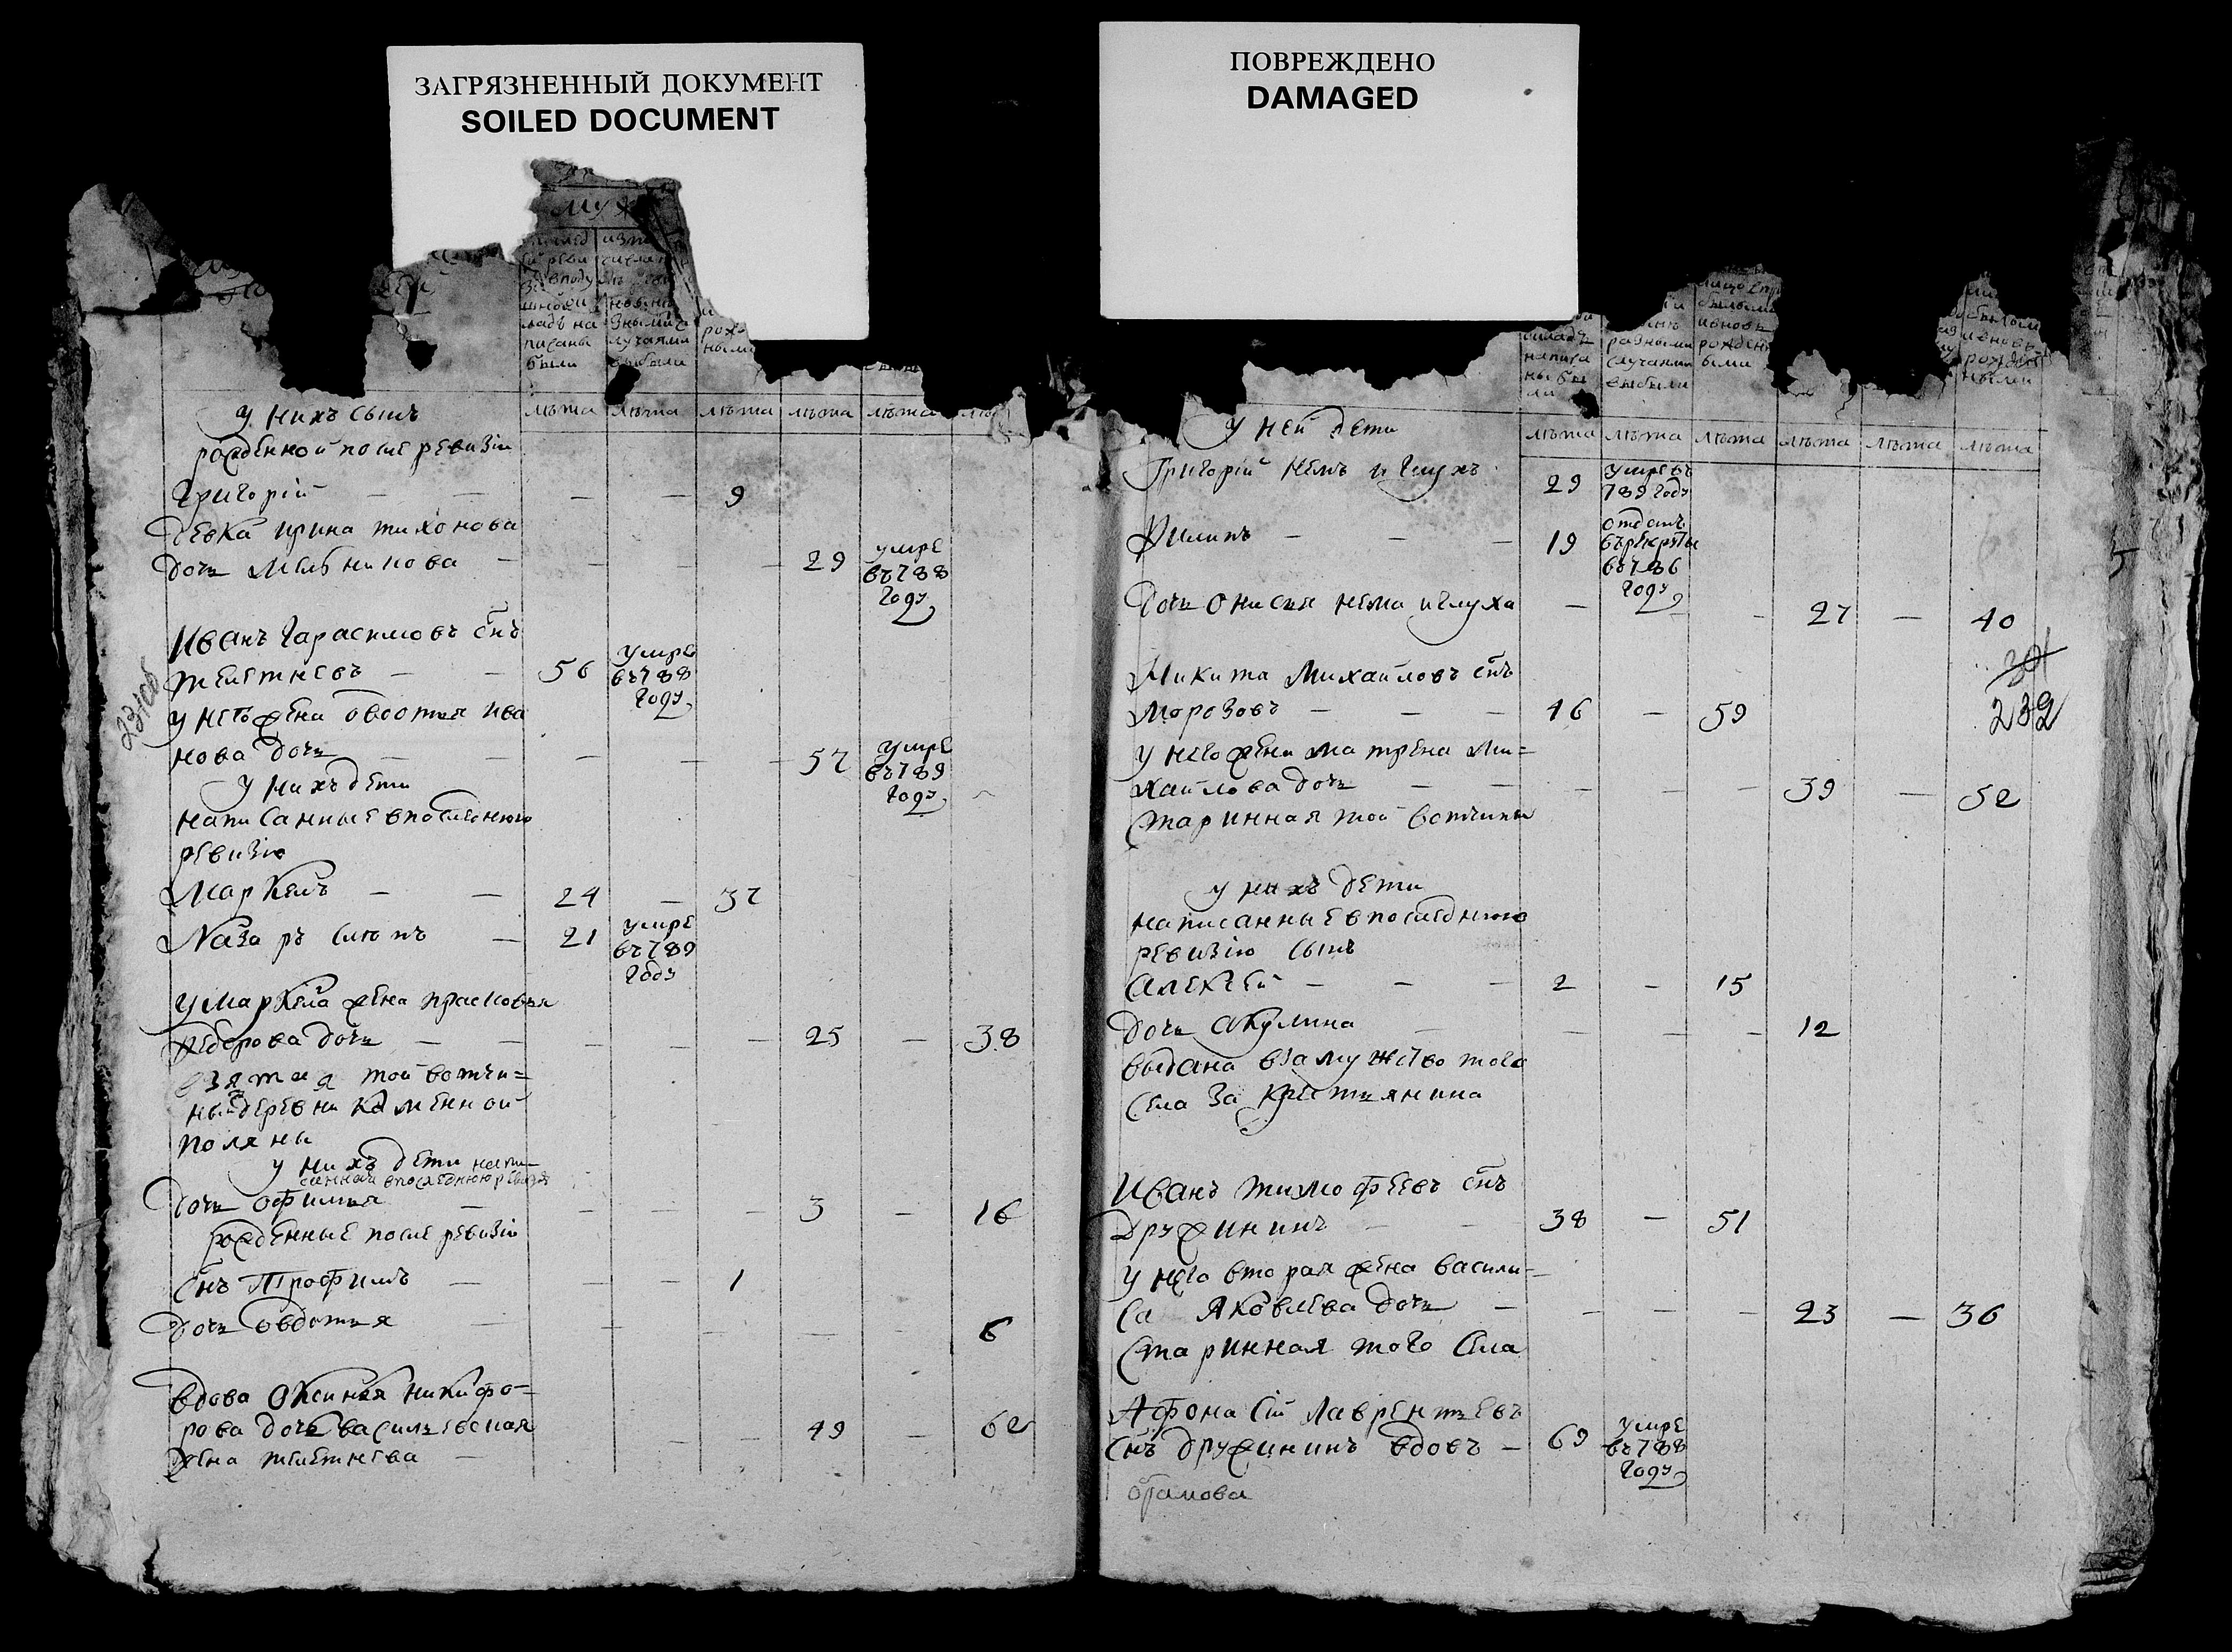 ЗАГРЯЗНЕННЫЙ ДОКУМЕНТ
SOILED DOCUMENT
му
ладъ на
писаны
были
лучаями
выбыли
рож
ными
лѣта лѣта лѣта лѣта лѣта
у нихъ сынъ
рожденной после ревизіи
Григорій — — — — 9
девка ирина тихонова
дочь мельникова — — — — 29 умре
въ 788
году
Иванъ Гарасимовъ снъ
телетневъ — — 56 умре
въ 788
году
у него жена овдотья ива
нова дочь — — — — — 57 умре
въ 789
году
у нихъ дети
написанные в последнюю
ревизію
Маркелъ — — 24 — 37
Назаръ слепъ — 21 умре
въ 789
году
у Маркела жена прасковья
федорова дочь — — — — — 25 — 38
взятая той вотчи=
ны деревни каменной
поляны
у нихъ дети напи
санная в последнюю ревизію
дочь офимья — — — — 3 — 16
рожденные после ревизіи
снъ Трофимъ — — — 1
дочь овдотья — — — — — 6
вдова Оксинья никифо=
рова дочь васильевская
жена телетнева — — — 49 — 62
231об
ПОВРЕЖДЕНО
DAMAGED
окладъ
написа
ны бы
ли
разными
случаями
выбыли
вновь
рожден
ыми
лѣта лѣта лѣта лѣта лѣта лѣта
у ней дети
Григорій немъ и глухъ 29 умре въ
789 году
Филипъ — — — 19 отданъ
въ рекруты
въ 786
году
дочь онисья нема и глуха — — 27 — 40
Никита Михайловъ снъ
Морозовъ — — — 46 — 59
232
у него жена матрена Ми=
хайлова дочь — — — — — 39 — 52
старинная той вотчины
у нихъ дети
написанные в последнюю
ревизію сынъ
Алексей — — — 2 — 15
дочь акулина — — — — 12
выдана в замужство того
села за крестьянина
Иванъ тимофеевъ снъ
дружининъ — — 38 — 51
у него вторая жена васили=
са Яковлева дочь — — — — 23 — 36
старинная того села
Афонасій лаврентьевъ
снъ дружининъ вдовъ — 69 умре
въ 788
году